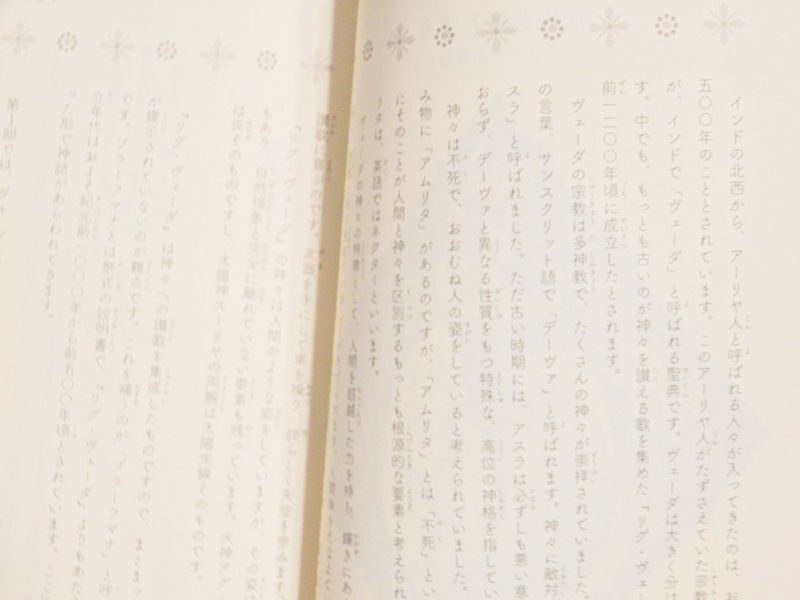 インドの北西から、アーリヤ人と呼ばれる人々が入ってきたのは、お
五〇〇年のこととされています。このアーリヤ人がたずさえていた宗教
が、インドで『ヴェーダ』と呼ばれる聖典です。ヴェーダは大きく分け
す。中でも、もっとも古いのが神々を讃える歌を集めた『リグ・ヴェー
前一二〇〇年頃に成立したとされます。
ヴェーダの宗教は多神教で、たくさんの神々が崇拝されていました。
の言葉、サンスクリット語で「デーヴァ」と呼ばれます。神々に敵対
スラ」と呼ばれました。ただ古い時期には、アスラは必ずしも悪い意
おらず、デーヴァと異なる性質をもつ特殊な、高位の神格を指してい
神々は不死で、おおむね人の姿をしていると考えられていました。
み物に「アムリタ」があるのですが、「アムリタ」とは「不死」とい
にそのことが人間と神々を区別するもっとも根源的な要素と考えられ
リタは、英語ではネクターといいます。
ヴェーダの神々の特徴として、人間を超越した力を持ち、輝きにあ
『リグ・ヴェーダ』の神々は人間のような姿をしていますが、その姿は
もあり、自然現象と完全に離れていない要素も残っています。火神アグ
は炎そのものですし、太陽神スーリヤの両腕は太陽光線そのものです。
『リグ・ヴェーダ』は神々への讃歌を集成したものですので、まとまっ
が提示されていないのが難点です。これを補うのが『ブラーフマナ』と呼
です。ブラーフマナとは祭式の説明書で、『リグ・ヴェーダ』よりもあと
立年代はおよそ紀元前一〇〇〇年から前五〇〇年頃とされています。ここに
った形で神話があらわれてきます。
第1部では、ヴェ